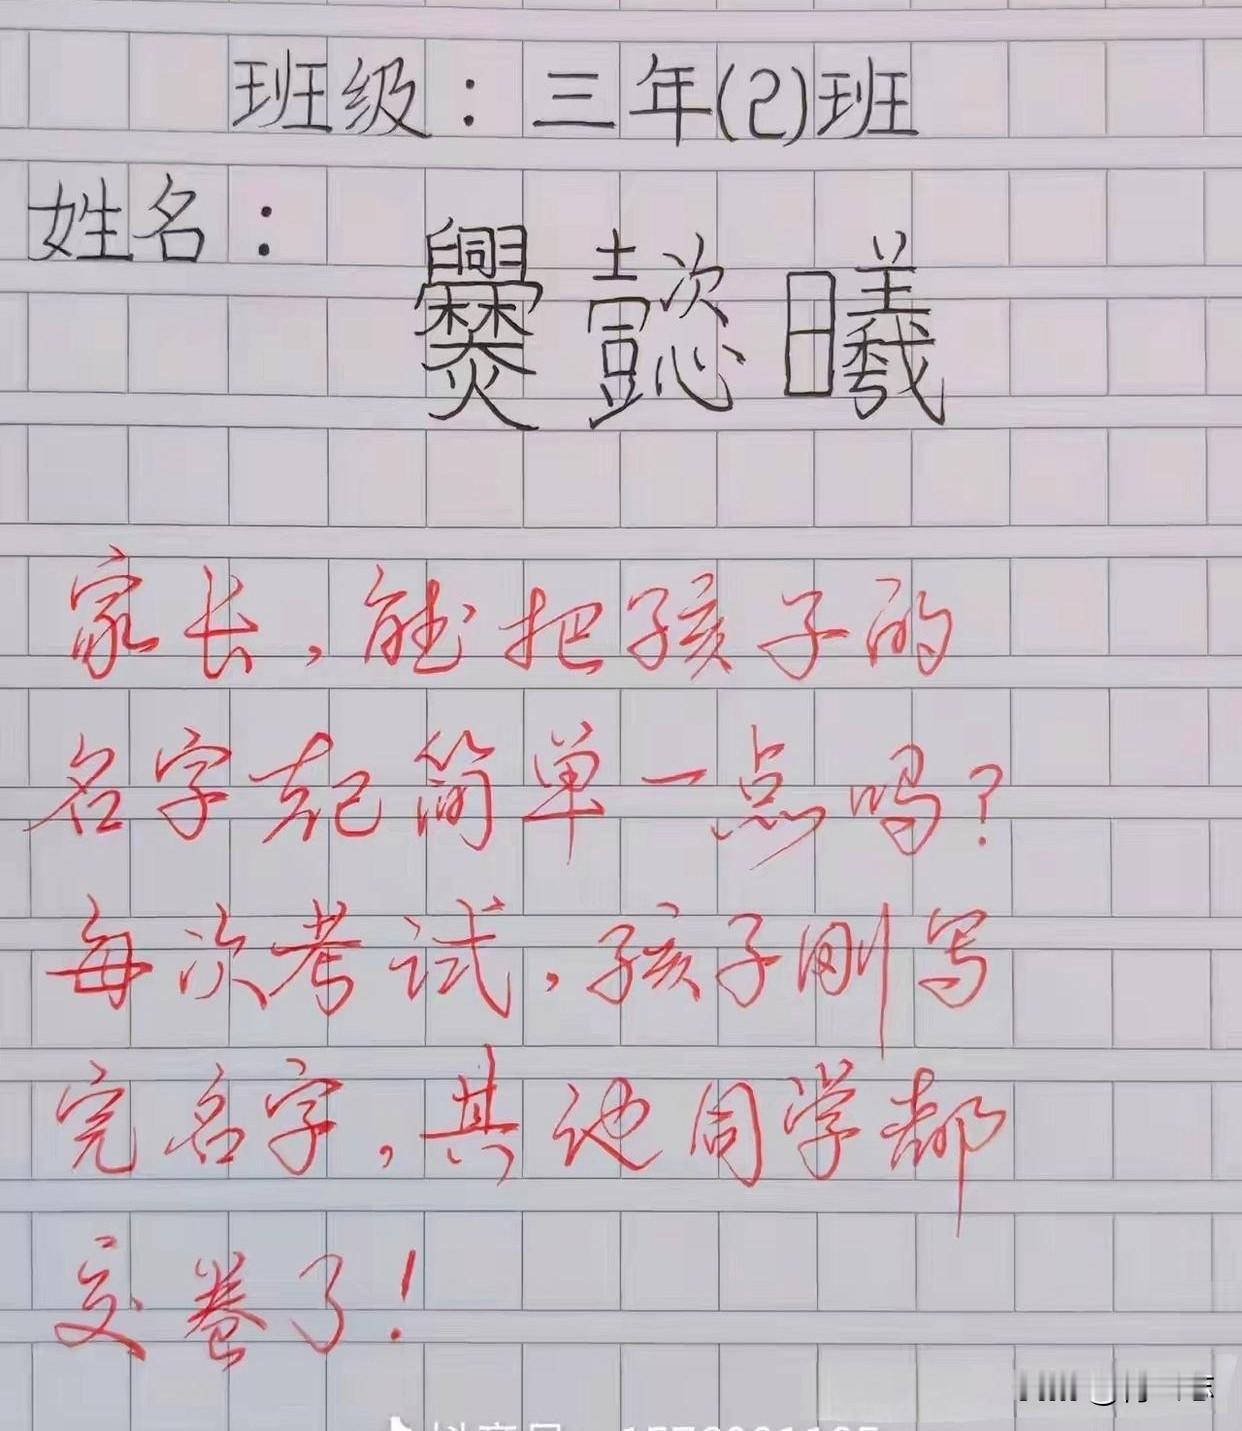 班级：三年(2)班
姓名：爨懿曦
家长，能把孩子的
名字起简单一点吗？
每次考试，孩子刚写
完名字，其他同学都
交卷了！